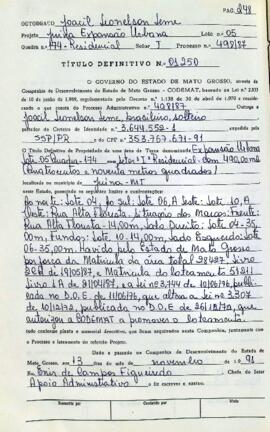 PAG. 248
OUTORGADO Joacil Leonelson Leme
Projeto Juína Expansão Urbana Lote nº 05
Quadra nº 174-Residencial Setor I Processo nº 498187
TÍTULO DEFINITIVO Nº 01350
O GOVERNO DO ESTADO DE MATO GROSSO, através da
Companhia de Desenvolvimento do Estado de Mato Grosso - CODEMAT, baseado na Lei nº
10 de junho de 1.989, regulamentado pelo Decreto nº 1.138 de 30 de abril de 1970 e considerando
o que consta do Processo Administrativo nº 498187 Outorga a
Joacil Leonelson Leme, brasileiro, solteiro
portador da Carteira de Identidade nº 3.644.552-1 expedida pela
SSP/PR e CPF nº 353.767.671-91
O Título Definitivo de Propriedade de uma área de Terra denominada Expansão Urbana
Lote 05 Quadra 174 Setor "I" Residencial com 490,00m2
(Quatrocentos e noventa metros quadrados)
localizada no município Juína-MT
neste Estado, possuindo os seguintes limites e confrontações:
Ao Norte: Lote 04, Ao Sul: Lote 06, A Leste: Lote 10, A
Oeste: Rua Alta Floresta. Situação dos Marcos: Frente:
Rua Alta Floresta-14,00m, Lado Direito: Lote 04-35,
00m, Fundos: Lote 10-14,00m, Lado Esquerdo: Lote
06-35,00m. Havido pelo Estado de Mato Grosso
por força da Matrícula da área total 38427, Livro
de 19/05/87, e Matrícula do Loteamento 51311
Livro e a Lei nº 3.744 de 10/06/76, pu-
blicada no D.O.E. de 11/06/76, que altera a Lei nº 3.307
de 10/12/72, publicada no D.O.E. de
autorizou a CODEMAT a promover o Loteamento.
conforme planta e memorial descritivo, que ficam arquivados nesta Companhia, juntamente com
o Processo e loteamento do referido Projeto.
Dado e passado na Companhia de Desenvolvimento do Estado de
Mato Grosso, aos 13 dia do mês de novembro de 1991
Eu Enir de Campos Figueiredo Chefe do Setor
Apoio Administrativo o fiz escrever e assino.
Transcrito por
Conferido por
Visto